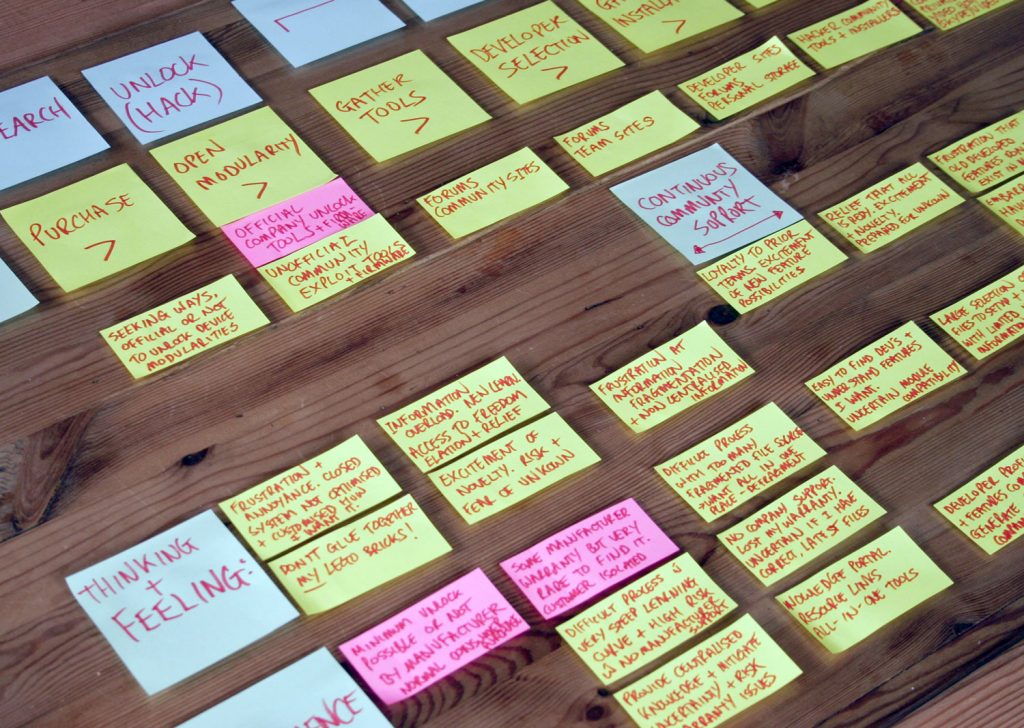 EARCH
UNLOCK
(HACK)
PURCHASE
>
OPEN
MODULARITY
>
GATHER
TOOLS
>
DEVELOPER
SELECTION
>
INSTALL
>
OFFICIAL
COMPANY UNLOCK
TOOLS +
UNOFFICIAL
COMMUNITY
EXPLOIT TOOLS
+ FIRMWARE
FORUMS
COMMUNITY SITES
FORUMS
TEAM SITES
DEVELOPER SITES
FORUMS
PERSONAL STORAGE
HACKER COMMUNITY
TOOLS + INSTALLERS
SEEKING WAYS,
OFFICIAL OR NOT
TO UNLOCK DEVICE
MODULARITIES
CONTINUOUS
COMMUNITY
SUPPORT
LOYALTY TO PRIOR
TEAMS. EXCITEMENT
OF NEW FEATURE
POSSIBILITIES
RELIEF THAT ALL
IS READY. EXCITEMENT
+ NOVELTY.
PREPARED FOR UNKOWN
FRUSTRATION THAT
OLD DEVELOPED
FEATURES
EXIST
LARGE SELECTION
FILES TO SETUP +
WITH LIMITED
INFORMATION
EASY TO FIND DEV'S +
UNDERSTAND FEATURES
I WANT.
UNCERTAIN MODULE
COMPATIBILITY
FRUSTRATION AT
INFORMATION
FRAGMENTATION
+ NON CENTRALISED
INFORMATION
INFORMATION
OVERLOAD. NEW
ACCESS TO FREEDOM
ELATION + RELIEF
EXCITEMENT OF
NOVELTY. RISK +
FEAR OF UNKOWN
FRUSTRATION +
ANNOYANCE. CLOSED
SYSTEM NOT OPTIMISED
+ CUSTOMISED HOW
I WANT IT.
DON'T GLUE TOGETHER
MY LEGO BRICKS!
THINKING
+
FEELING:
DIFFICULT PROCESS
WITH TOO MANY
FRAGMENTED FILE SOURCES
WANT ALL IN ONE
PLACE - DEFRAGMENT
NO COMPANY SUPPORT.
LOST MY WARRANTY.
UNCERTAIN IF I HAVE
CORRECT, LATEST FILES
DEVELOPER
+ FEATURES
SOME MANUFACTURER
WARRANTY BUT VERY
RARE TO FIND IT.
CUSTOMER ISOLATED
MINIMUM UNLOCK
POSSIBLE OR NOT
BY MANUFACTURER
NORMAL
DIFFICULT PROCESS
VERY STEEP LEARNING
CURVE + HIGH RISK
NO MANUFACTURER
SUPPORT
KNOWLEDGE PORTAL.
RESOURCE LINKS
ALL-IN-ONE TOOLS
PROVIDE CENTRALISED
KNOWLEDGE + MITIGATE
UNCERTAINTY + RISK
WARRANTY ISSUES